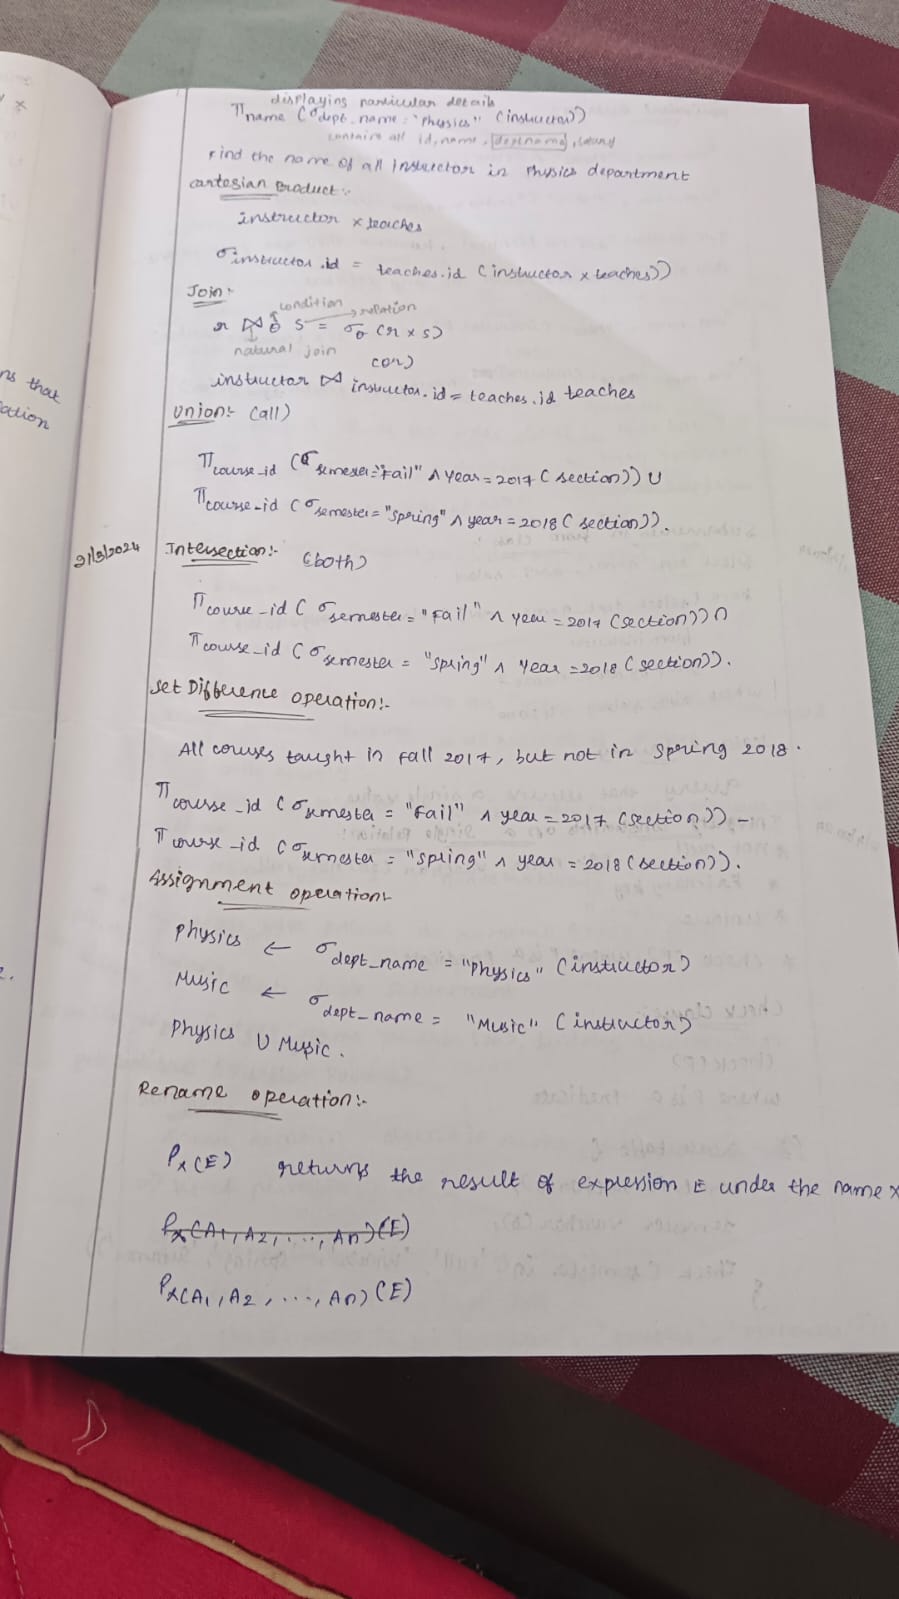 displaying particular details
Π name (σ dept_name = "Physics" (instructor))
contains all id, name, dept name, salary
Find the name of all Instructor in Physics department
cartesian product:-
instructor × teaches
σ instructor.id = teaches.id (instructor × teaches))
Join:-
condition → relation
r ⋈ θ s = σθ (r × s)
natural join
(or)
instructor ⋈ instructor.id = teaches.id teaches
Union:- (all)
Π course_id (σ semester="Fall" ∧ year=2017 (section)) ∪
Π course_id (σ semester="Spring" ∧ year=2018 (section)).
21/3/2024
Intersection:- (both)
Π course_id (σ semester = "Fall" ∧ year = 2017 (section)) ∩
Π course_id (σ semester = "Spring" ∧ Year = 2018 (section)).
Set Difference operation:-
All courses taught in Fall 2017, but not in Spring 2018.
Π course_id (σ semester = "Fall" ∧ year = 2017 (section)) –
Π course_id (σ semester = "Spring" ∧ year = 2018 (section)).
Assignment operation:-
Physics ← σ dept_name = "Physics" (instructor)
Music ← σ dept_name = "Music" (instructor)
Physics ∪ Music.
Rename operation:-
ρx(E) returns the result of expression E under the name x
ρx(A1, A2, ...., An)(E)
ρx(A1, A2, ...., An)(E)
ns that
ation